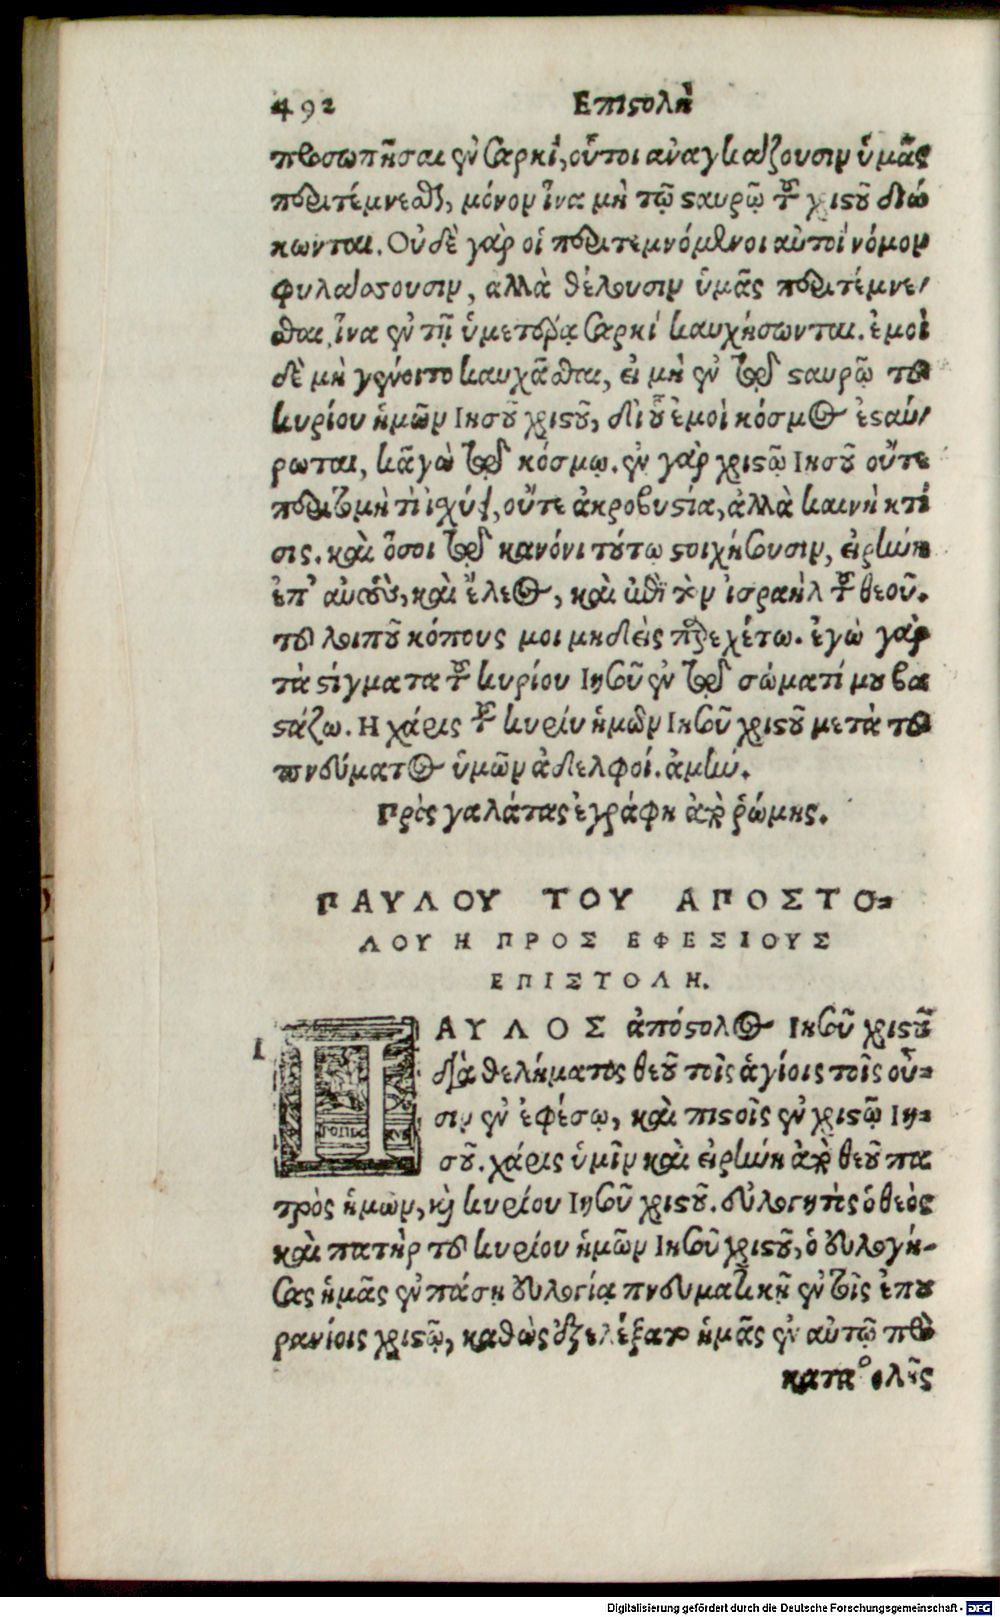 492 Επιϛολὴ
προσωπῆσαι ἐν σαρκί, οὗτοι ἀναγκάζουσιν ὑμᾶς
περιτέμνεσθαι, μόνον ἵνα μὴ τῷ ϛαυρῷ τοῦ χριϛοῦ διώ
κωνται. Οὐδὲ γὰρ οἱ περιτεμνόμενοι αὐτοὶ νόμον
φυλάσσουσιν, αλλὰ θέλουσιν ὑμᾶς περιτέμνε/
σθαι, ἵνα ἐν τῇ ὑμετέρᾳ σαρκί καυχήσωνται. ἐμοὶ
δὲ μὴ γένοιτο καυχᾶσθαι, εἰ μὴ ἐν τῷ ϛαυρῷ τοῦ
κυρίου ἡμῶν Ιησοῦ χριϛοῦ, δι οὗ ἐμοὶ κόσμος ἐϛαύ/
ρωται, κᾀγὼ τῷ κόσμῳ. ἐν γὰρ χριϛῷ Ιησοῦ οὔτε
περιτομὴ τὶ ἰσχύει, οὔτε ἀκροβυϛία, ἀλλὰ καινὴ κτί
σις. καὶ ὅσοι τῷ κανόνι τούτῳ ϛοιχήσουσιν, εἰρήνη
ἐπ' αὐτοὺς, καὶ ἔλεος, καὶ ἐπὶ τὸν ἰσραὴλ τοῦ θεοῦ.
τοῦ λοιποῦ κόπους μοι μηδεὶς παρεχέτω. ἐγὼ γὰρ
τὰ ϛίγματα τοῦ κυρίου Ιησοῦ ἐν τῷ σώματί μου βα
ϛάζω. Η χάρις τοῦ κυρίου ἡμῶν Ιησοῦ χριϛοῦ μετὰ τοῦ
πνεύματος ὑμῶν ἀδελφοί. ἀμήν.
Πρὸς γαλάτας ἐγράφη ἀπὸ ῥώμης.
ΠΑΥΛΟΥ ΤΟΥ ΑΠΟΣΤΟ=
ΛΟΥ Η ΠΡΟΣ ΕΦΕΣΙΟΥΣ
ΕΠΙΣΤΟΛΗ.
1 ΠΑΥΛΟΣ ἀπόϛολος Ιησοῦ χριϛοῦ
διὰ θελήματος θεοῦ τοῖς ἁγίοις τοῖς οὖ=
σιν ἐν ἐφέσῳ, καὶ πιϛοῖς ἐν χριϛῷ Ιη=
σοῦ. χάρις ὑμῖν καὶ εἰρήνη ἀπὸ θεοῦ πα
τρὸς ἡμῶν, καὶ κυρίου Ιησοῦ χριϛοῦ. εὐλογητὸς ὁ θεὸς
καὶ πατὴρ τοῦ κυρίου ἡμῶν Ιησοῦ χριϛοῦ, ὁ εὐλογή-
σας ἡμᾶς ἐν πάσῃ εὐλογίᾳ πνευματικῇ ἐν τοῖς ἐπου
ρανίοις χριϛῷ, καθὼς ἐξελέξατο ἡμᾶς ἐν αὐτῷ πρὸ
καταβολῆς
Digitalisierung gefördert durch die Deutsche Forschungsgemeinschaft - DFG